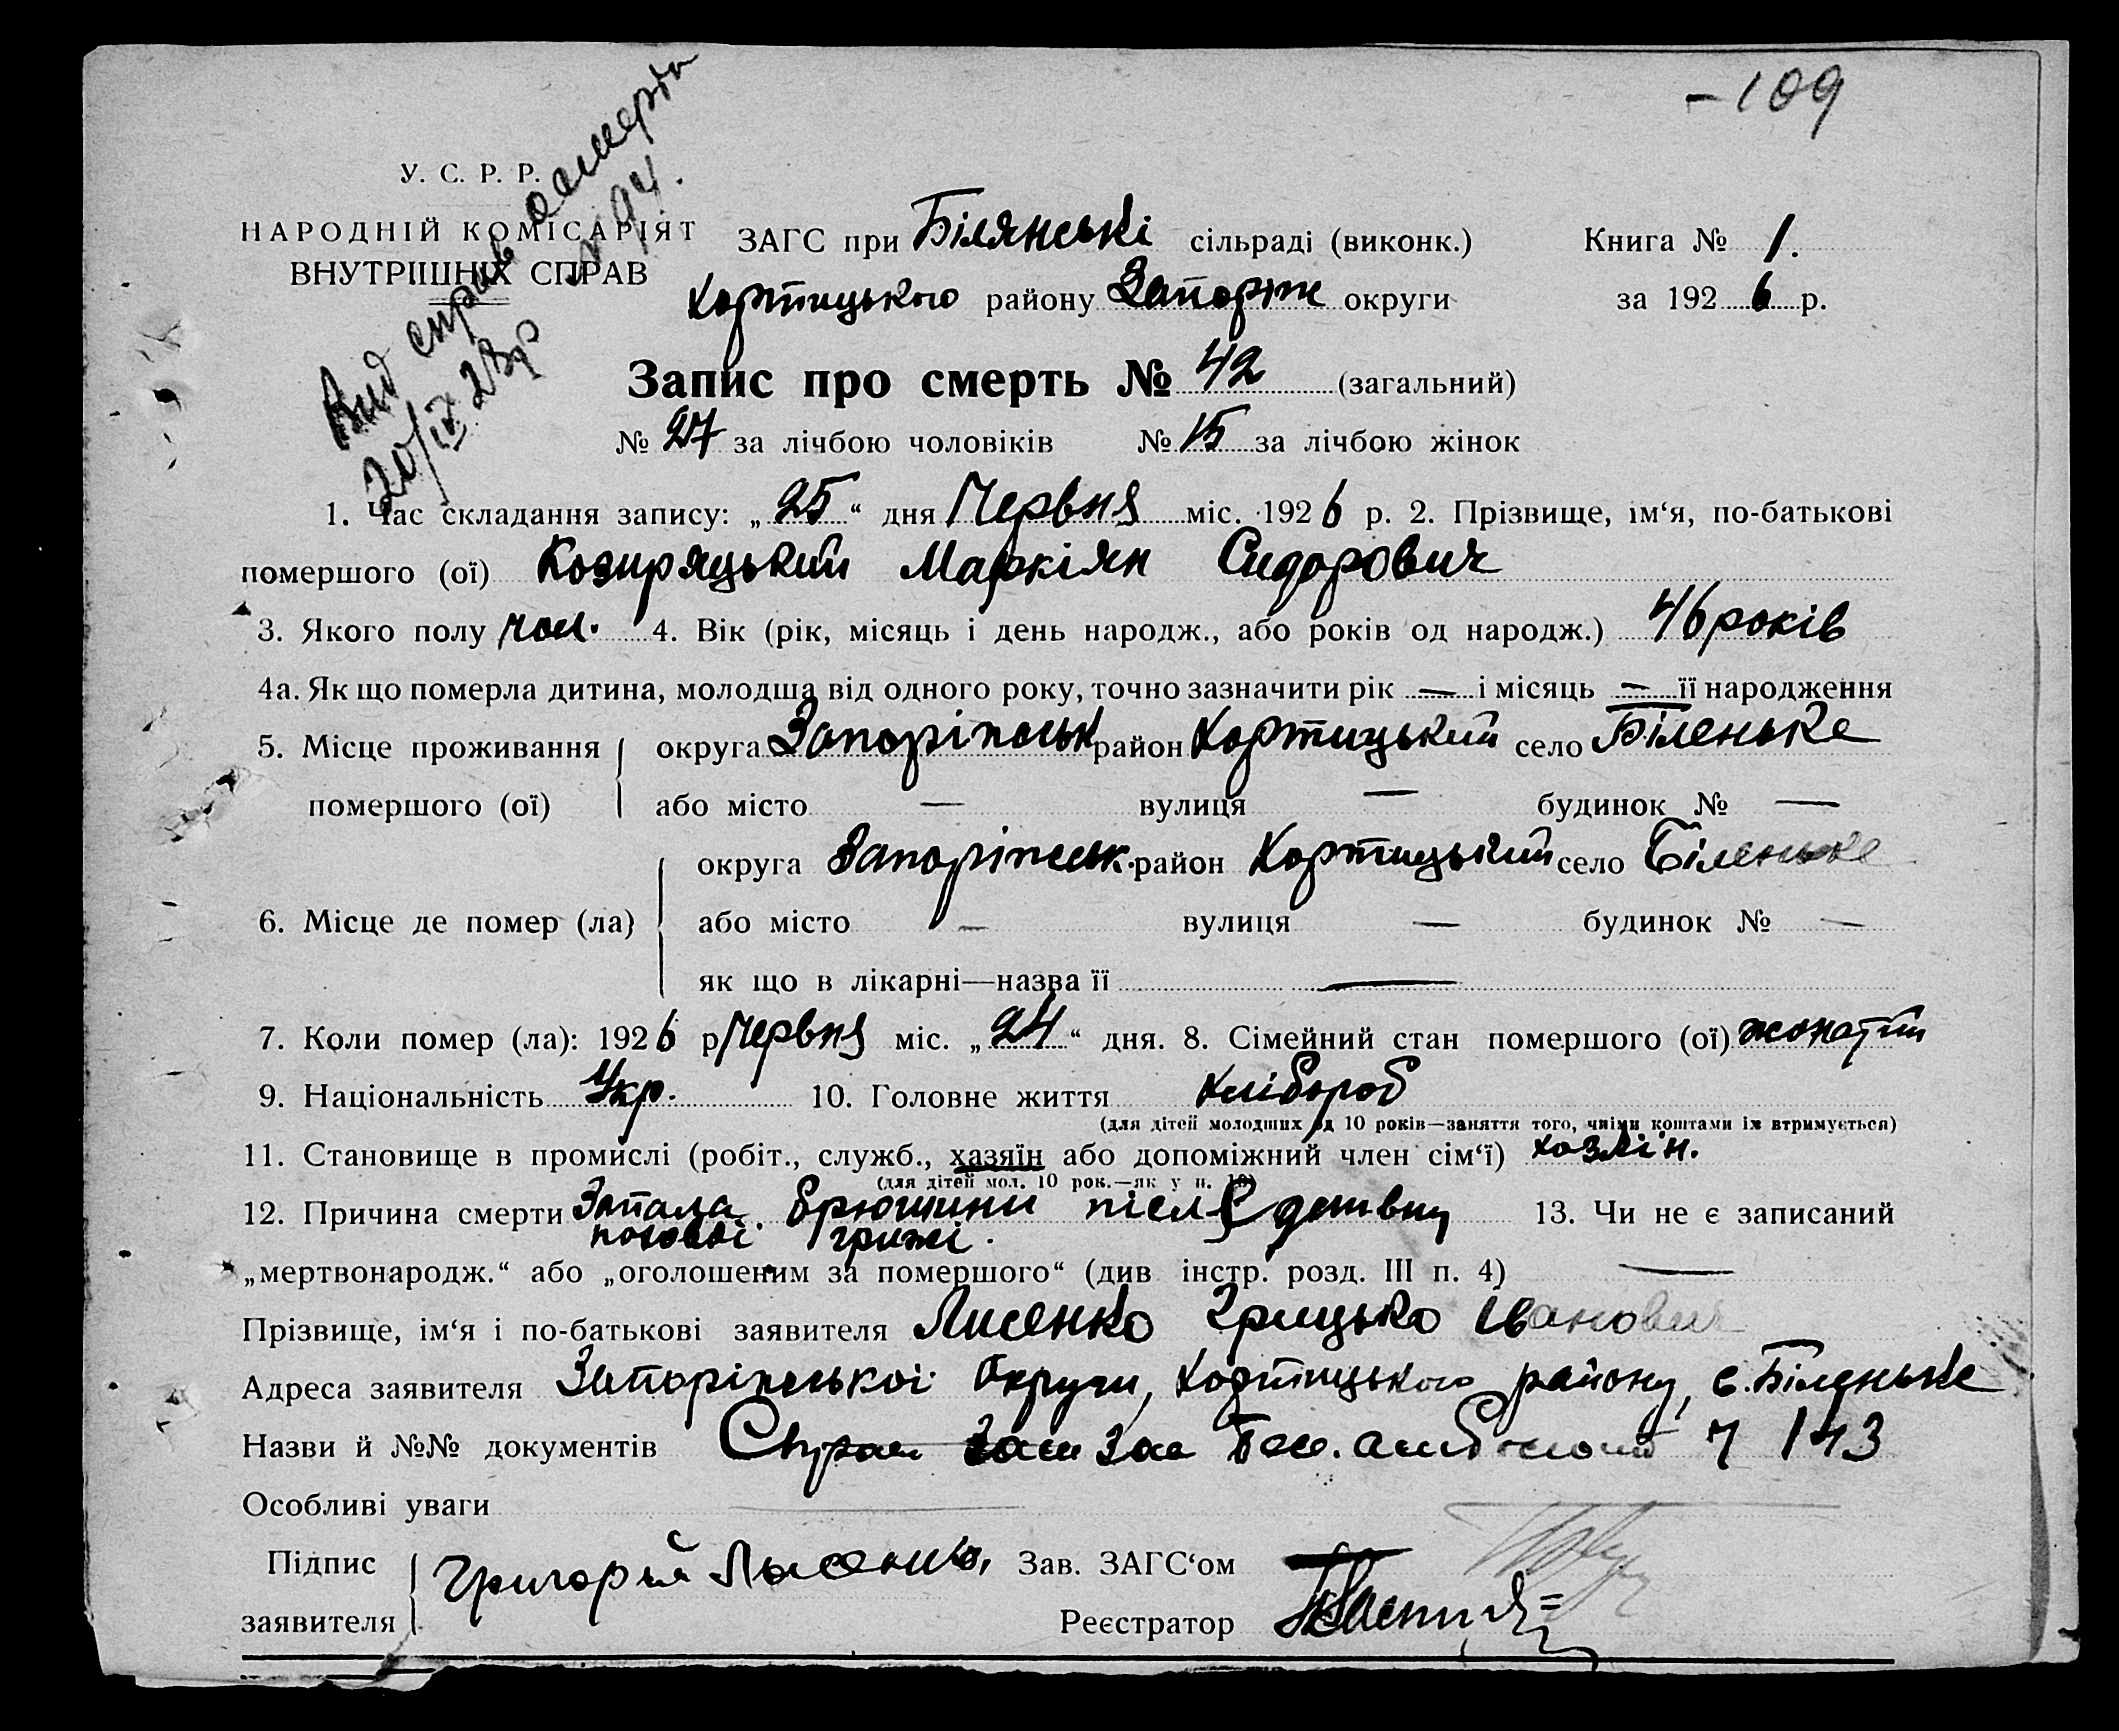 -109
У. С. Р. Р.
НАРОДНІЙ КОМІСАРІЯТ
ВНУТРІШНІХ СПРАВ
Вид справ о смерти
20/IX 23р № 94.
ЗАГС при Білянські сільраді (виконк.) Книга № 1.
Хортицького району Запоріж округи за 192 6 р.
Запис про смерть № 42 (загальний)
№ 27 за лічбою чоловіків № 15 за лічбою жінок
1. Час складання запису: „ 25 “ дня Червня міс. 192 6 р. 2. Прізвище, ім‘я, по-батькові
помершого (ої) Козиряцький Маркіян Сидорович
3. Якого полу чол. 4. Вік (рік, місяць і день народж., або років од народж.) 46 років
4а. Як що померла дитина, молодша від одного року, точно зазначити рік — і місяць — її народження
5. Місце проживання округа Запоріжськ район Хортицький село Біленьке
помершого (ої) або місто — вулиця — будинок № —
округа Запоріжськ. район Хортицький село Біленьке
6. Місце де помер (ла) або місто — вулиця — будинок № —
як що в лікарні—назва її —
7. Коли помер (ла): 192 6 р Червня міс. „ 24 “ дня. 8. Сімейний стан помершого (ої) жонатий
9. Національність Укр. 10. Головне життя хлібороб
(для дітей молодших од 10 років—заняття того, чиїми коштами їх втримується)
11. Становище в промислі (робіт., служб., хазяїн або допоміжний член сім‘ї) хозяїн.
(для дітей мол. 10 рок.—як у п. 10)
12. Причина смерти Запала брюшини після 13. Чи не є записаний
пахової грижі.
„мертвонародж.“ або „оголошеним за помершого“ (див інстр. розд. III п. 4) —
Прізвище, ім‘я і по-батькові заявителя Лисенко Грицько Іванович
Адреса заявителя Запоріжської Округи, Хортицького району, с. Біленьке
Назви й №№ документів Біл. амбулатор 143
Особливі уваги —
Підпис Григорій Лысенко, Зав. ЗАГС‘ом
заявителя Реєстратор